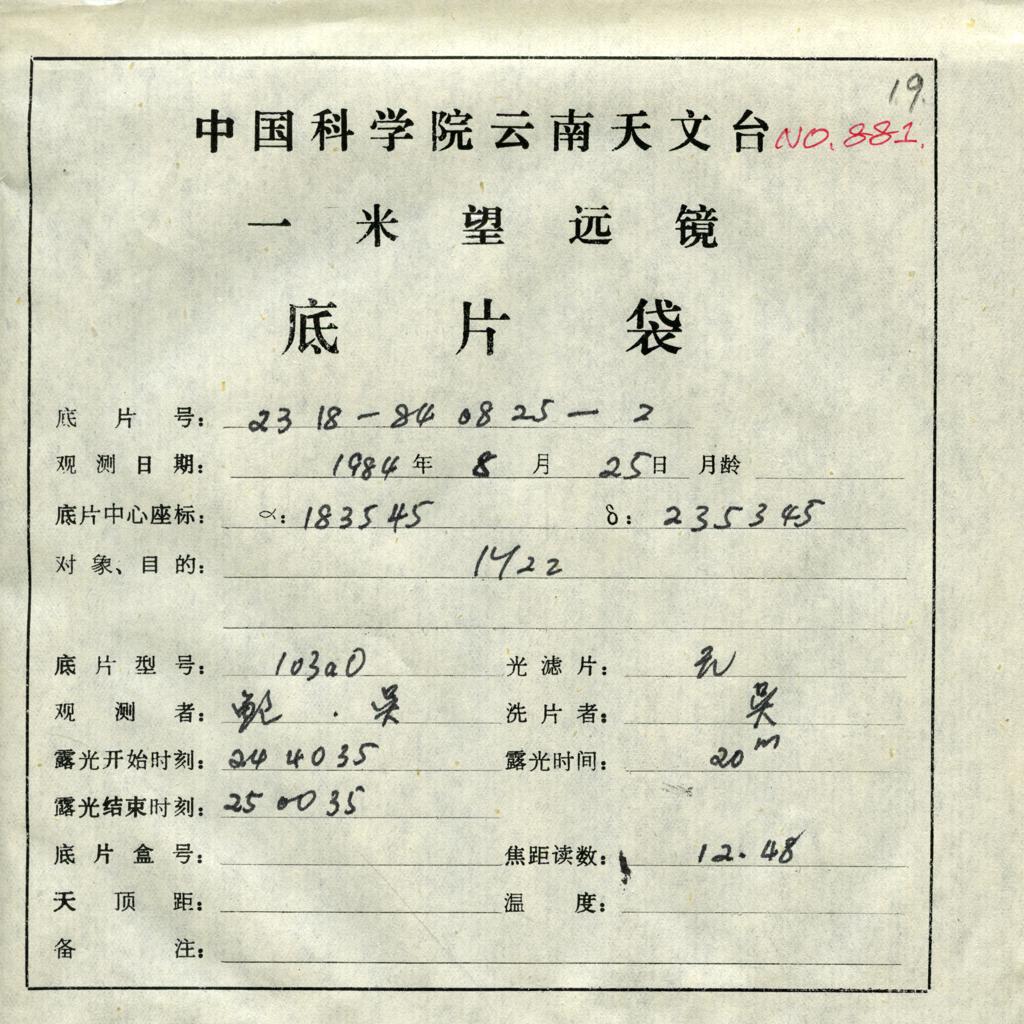 19.
中国科学院云南天文台 NO.881.
一米望远镜
底片袋
底片号： 2318-840825-2
观测日期： 1984年 8月 25日 月龄
底片中心座标： α：183545 δ：235345
对象、目的： M22
底片型号： 103aO 光滤片： 无
观测者： 鲍．吴 洗片者： 吴
露光开始时刻： 244035 露光时间： 20m
露光结束时刻： 250035
底片盒号： 焦距读数： 12.48
天顶距： 温度：
备注：